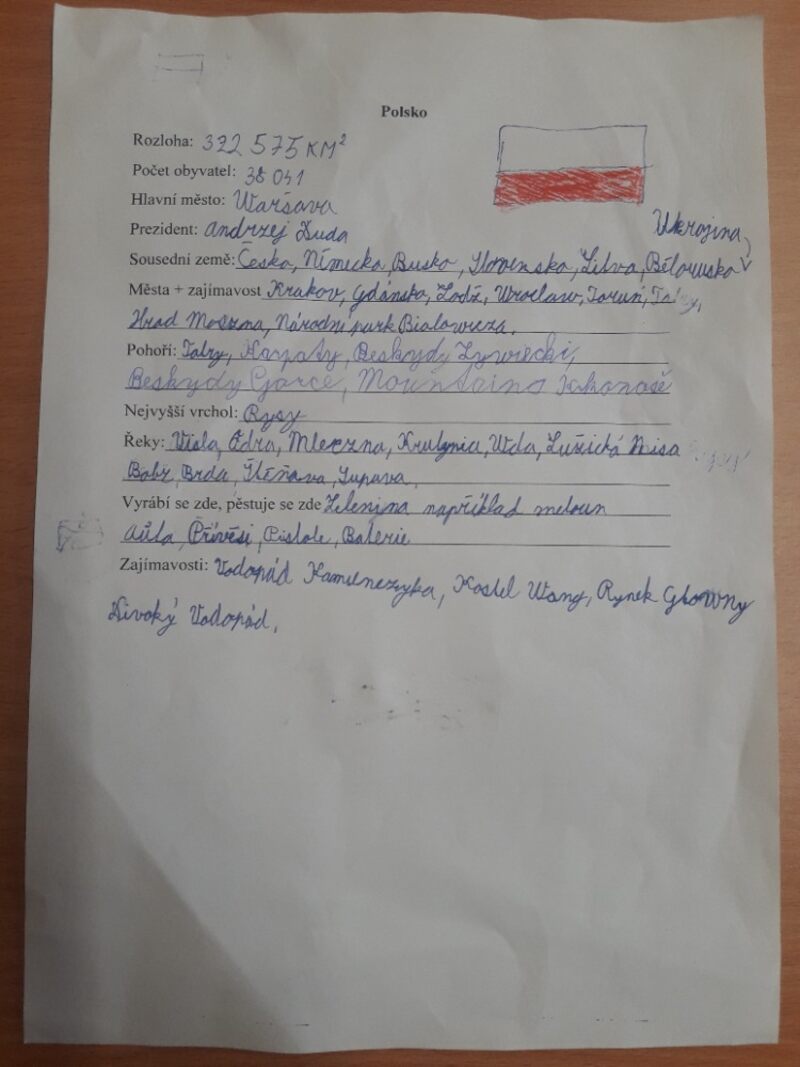 Polsko
Rozloha: 322 575 KM²
Počet obyvatel: 38 041
Hlavní město: Waršava
Prezident: Andrzej Duda
Ukrajina,
Sousední země: Česko, Německa, Rusko, Slovensko, Litva, Bělorusko
Města + zajímavost Krakov, Gdánsko, Lodž, Wroclaw, Toruń,
Hrad Moszna, Národní park Bialowieza,
Pohoří: Tatry, Karpaty, Beskydy Zywiecki,
Beskydy Gorce, Mountains Krkonoše
Nejvyšší vrchol: Rysy
Řeky: Visla, Odra, Mleczna, Krutynia, Wda, Lužická Nisa
Bobr, Brda, Stěnava, Lupava,
Vyrábí se zde, pěstuje se zde Zelenina například meloun
Auta, Přívěsi, Pistole, Baterie
Zajímavosti: Vodopád Kamienczyka, Kostel Wang, Rynek Glowny
Divoký Vodopád,